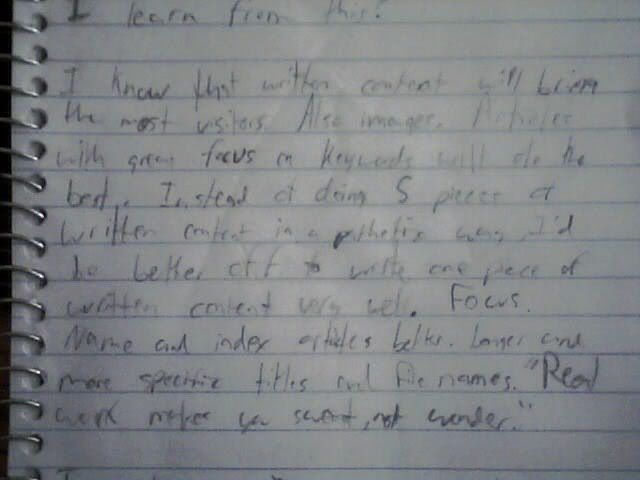 I learn from this?
I know that written content will bring
the most visitors. Also images. Articles
with great focus on keywords will do the
best. Instead of doing 5 pieces of
written content in a pathetic way, I'd
be better off to write one piece of
written content very well. Focus.
Name and index articles better. Longer and
more specific titles and file names. "Real
work makes you sweat, not wonder."